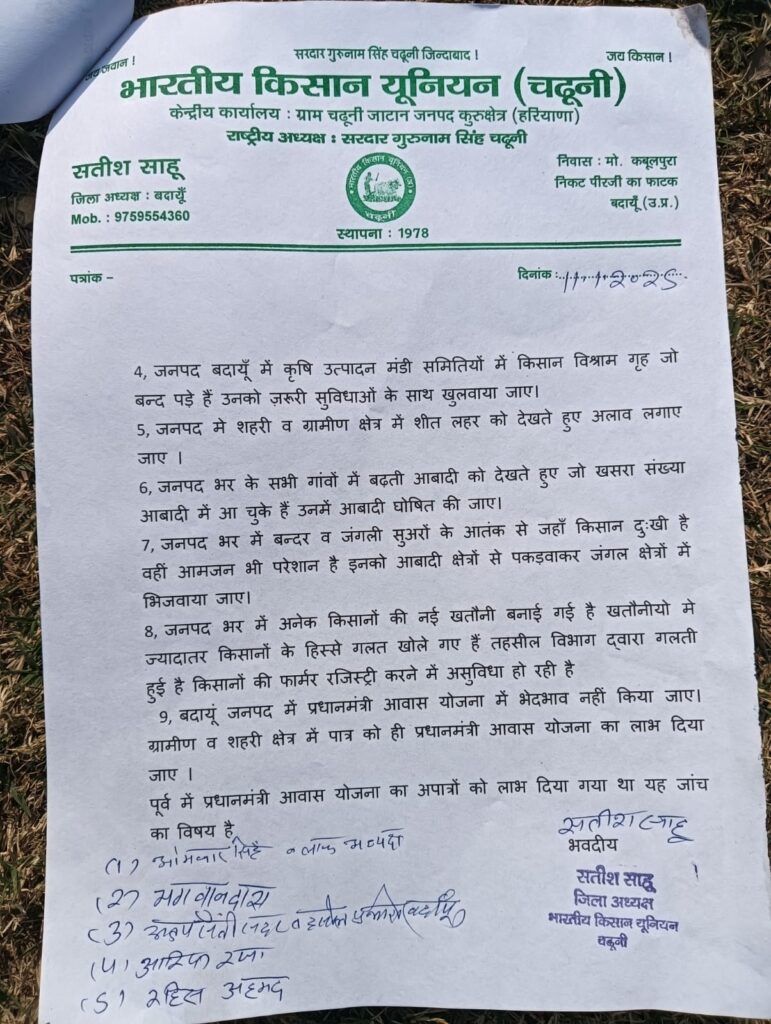 जय जवान !
सरदार गुरुनाम सिंह चढूनी जिन्दाबाद !
जय किसान !
भारतीय किसान यूनियन (चढूनी)
केन्द्रीय कार्यालय : ग्राम चढूनी जाटान जनपद कुरुक्षेत्र (हरियाणा)
राष्ट्रीय अध्यक्ष : सरदार गुरुनाम सिंह चढूनी
सतीश साहू
जिला अध्यक्ष : बदायूँ
Mob. : 9759554360
भारतीय किसान यूनियन (अ)
चढूनी
स्थापना : 1978
निवास : मो. कबूलपुरा
निकट पीरजी का फाटक
बदायूँ (उ.प्र.)
पत्रांक –
दिनांक :
4, जनपद बदायूँ में कृषि उत्पादन मंडी समितियों में किसान विश्राम गृह जो
बन्द पड़े हैं उनको ज़रूरी सुविधाओं के साथ खुलवाया जाए।
5, जनपद मे शहरी व ग्रामीण क्षेत्र में शीत लहर को देखते हुए अलाव लगाए
जाए ।
6, जनपद भर के सभी गांवों में बढ़ती आबादी को देखते हुए जो खसरा संख्या
आबादी में आ चुके हैं उनमें आबादी घोषित की जाए।
7, जनपद भर में बन्दर व जंगली सुअरों के आतंक से जहाँ किसान दुःखी है
वहीं आमजन भी परेशान है इनको आबादी क्षेत्रों से पकड़वाकर जंगल क्षेत्रों में
भिजवाया जाए।
8, जनपद भर में अनेक किसानों की नई खतौनी बनाई गई है खतौनीयो मे
ज्यादातर किसानों के हिस्से गलत खोले गए हैं तहसील विभाग द्वारा गलती
हुई है किसानों की फार्मर रजिस्ट्री करने में असुविधा हो रही है
9, बदायूं जनपद में प्रधानमंत्री आवास योजना में भेदभाव नहीं किया जाए।
ग्रामीण व शहरी क्षेत्र में पात्र को ही प्रधानमंत्री आवास योजना का लाभ दिया
जाए ।
पूर्व में प्रधानमंत्री आवास योजना का अपात्रों को लाभ दिया गया था यह जांच
का विषय है
सतीश साहू
भवदीय
सतीश साहू
जिला अध्यक्ष
भारतीय किसान यूनियन
चढूनी
(1) ओमकार सिंह
(2) भगवानदास
(3)
(4) आरिफ रजा
(5) रहिस अहमद